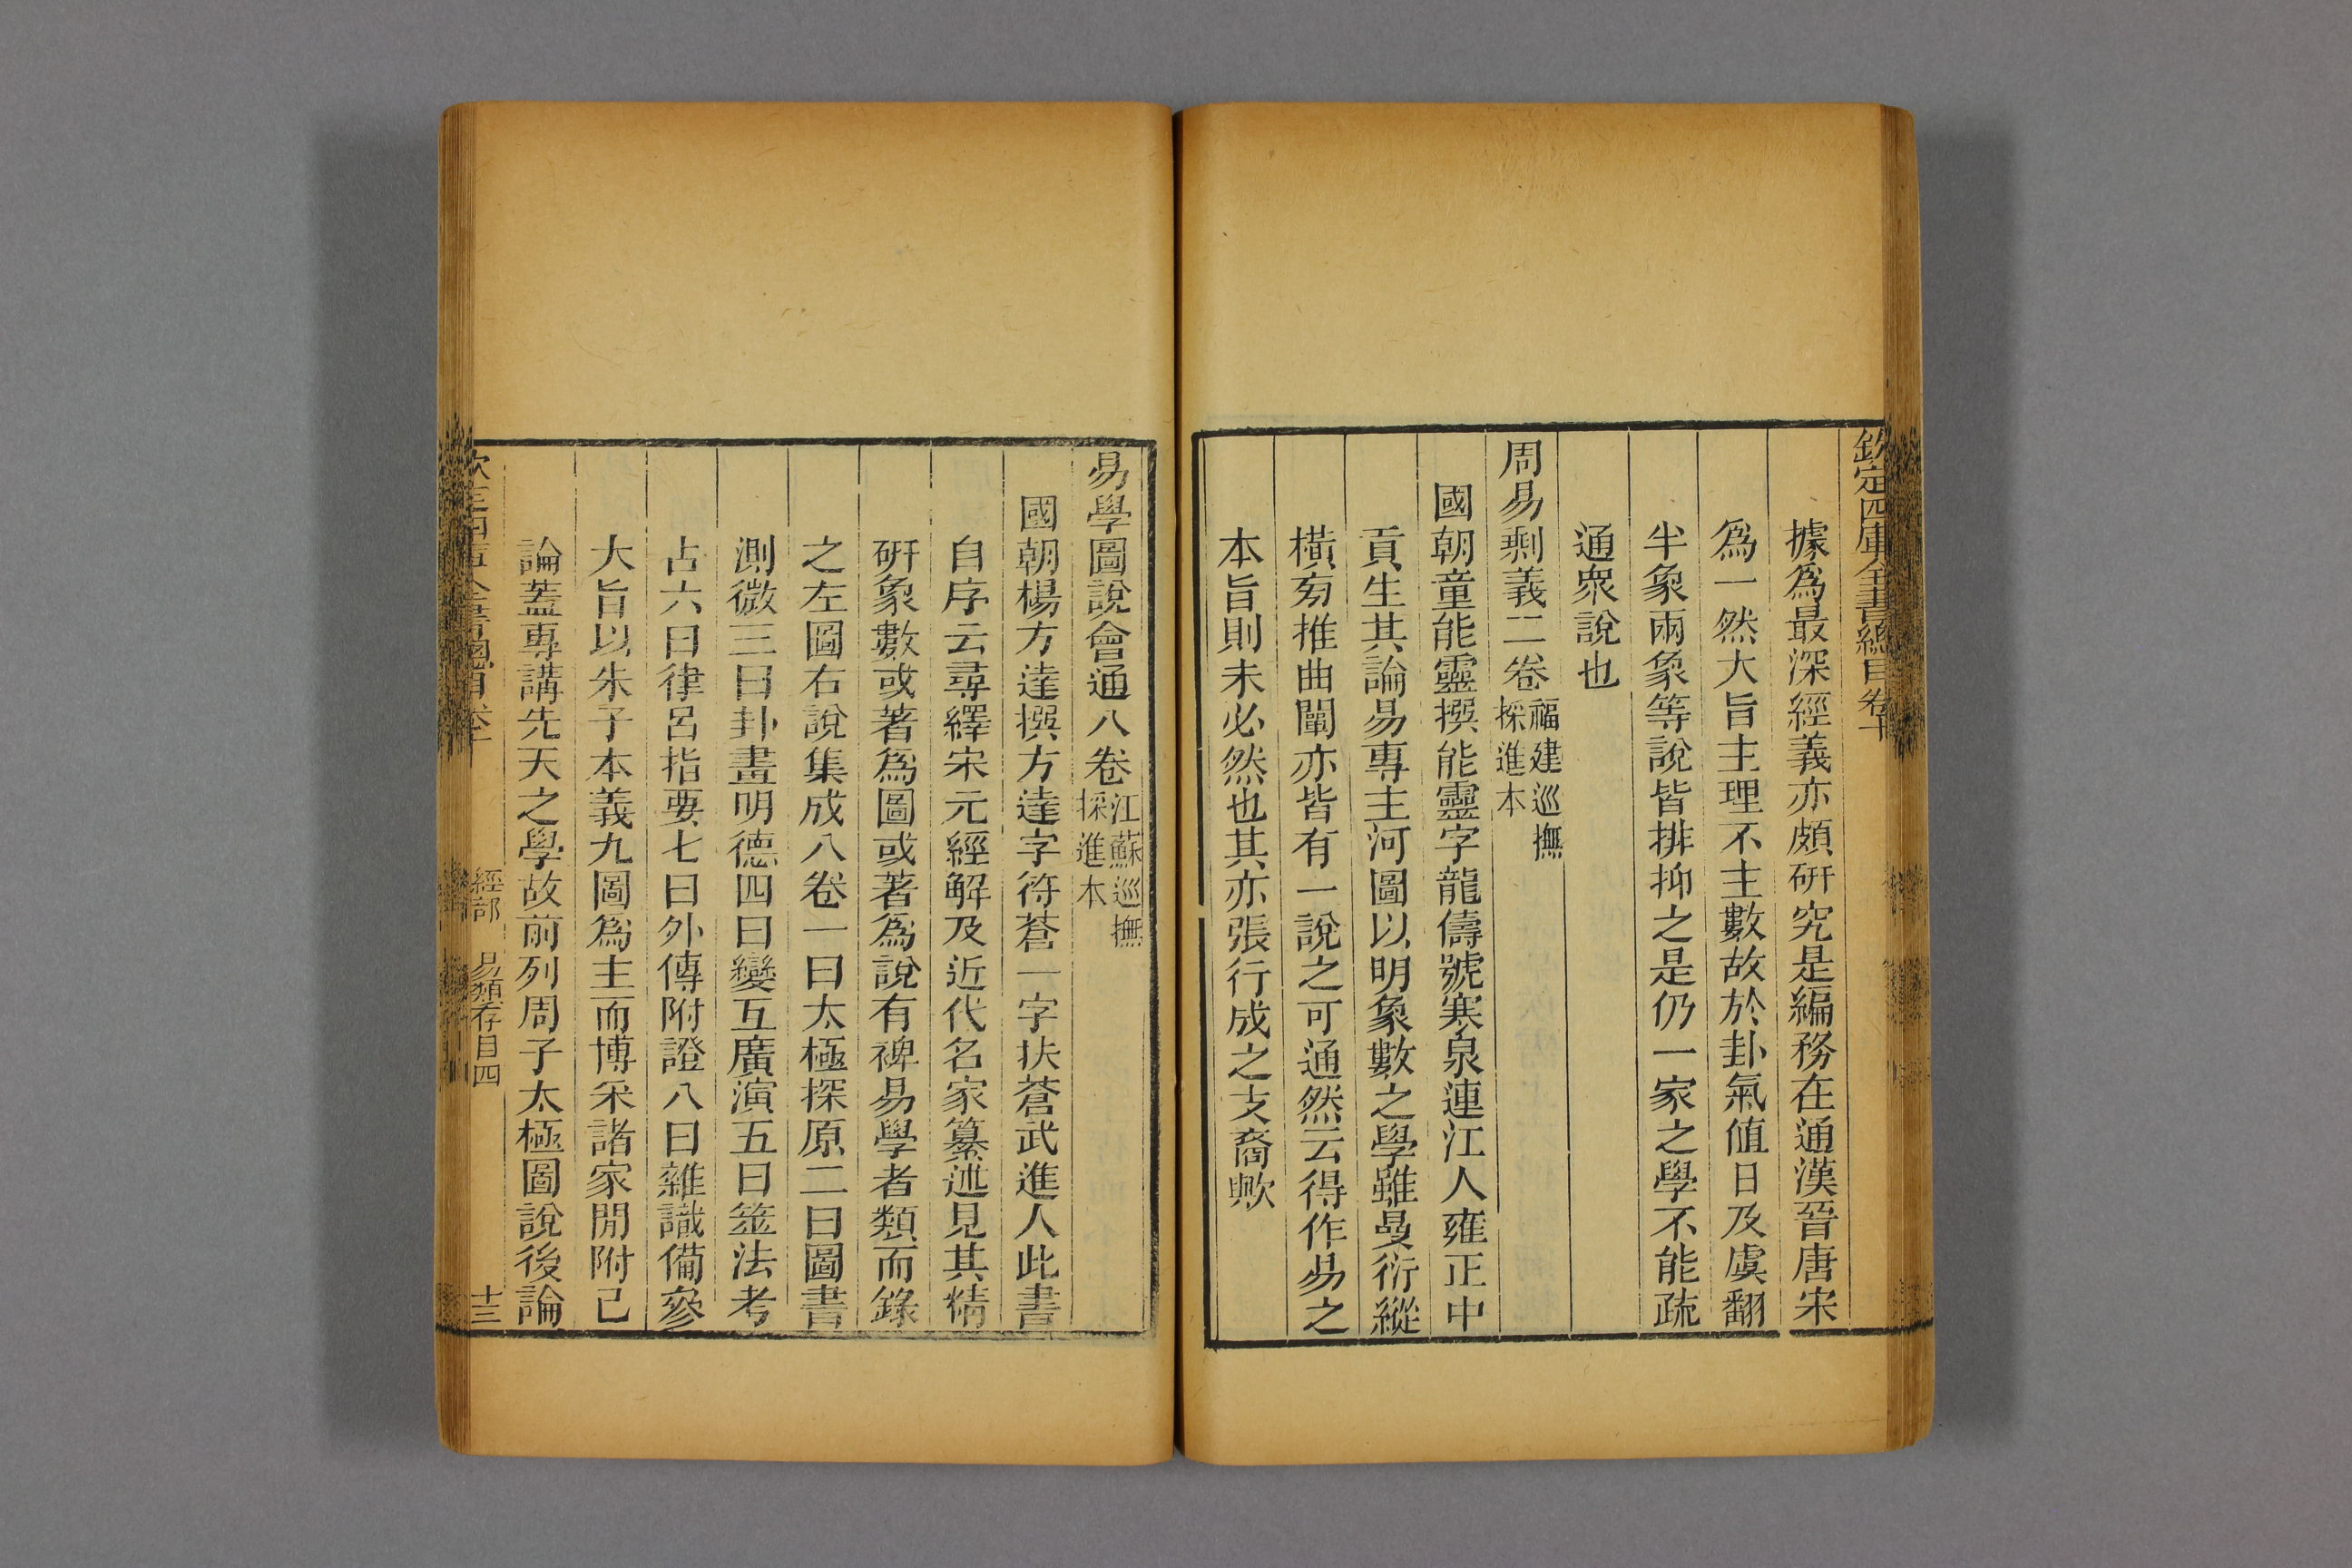 欽定四庫全書總目卷十
據爲最深經義亦頗研究是編務在通漢晉唐宋
爲一然大旨主理不主數故於卦氣值日及虞翻
半象兩象等說皆排抑之是仍一家之學不能疏
通衆說也
周易剩義二卷福建巡撫採進本
國朝童能靈撰能靈字龍儔號寒泉連江人雍正中
貢生其論易專主河圖以明象數之學雖曼衍縱
橫旁推曲闡亦皆有一說之可通然云得作易之
本旨則未必然也其亦張行成之支裔歟
易學圖說會通八卷江蘇巡撫採進本
國朝楊方達撰方達字符蒼一字扶蒼武進人此書
自序云尋繹宋元經解及近代名家纂述見其精
研象數或著爲圖或著爲說有裨易學者類而錄
之左圖右說集成八卷一曰太極探原二曰圖書
測微三曰卦畫明德四曰變互廣演五曰筮法考
占六曰律呂指要七曰外傳附證八曰雜識備參
大旨以朱子本義九圖爲主而博采諸家閒附己
論蓋專講先天之學故前列周子太極圖說後論
經部 易類存目四 十三